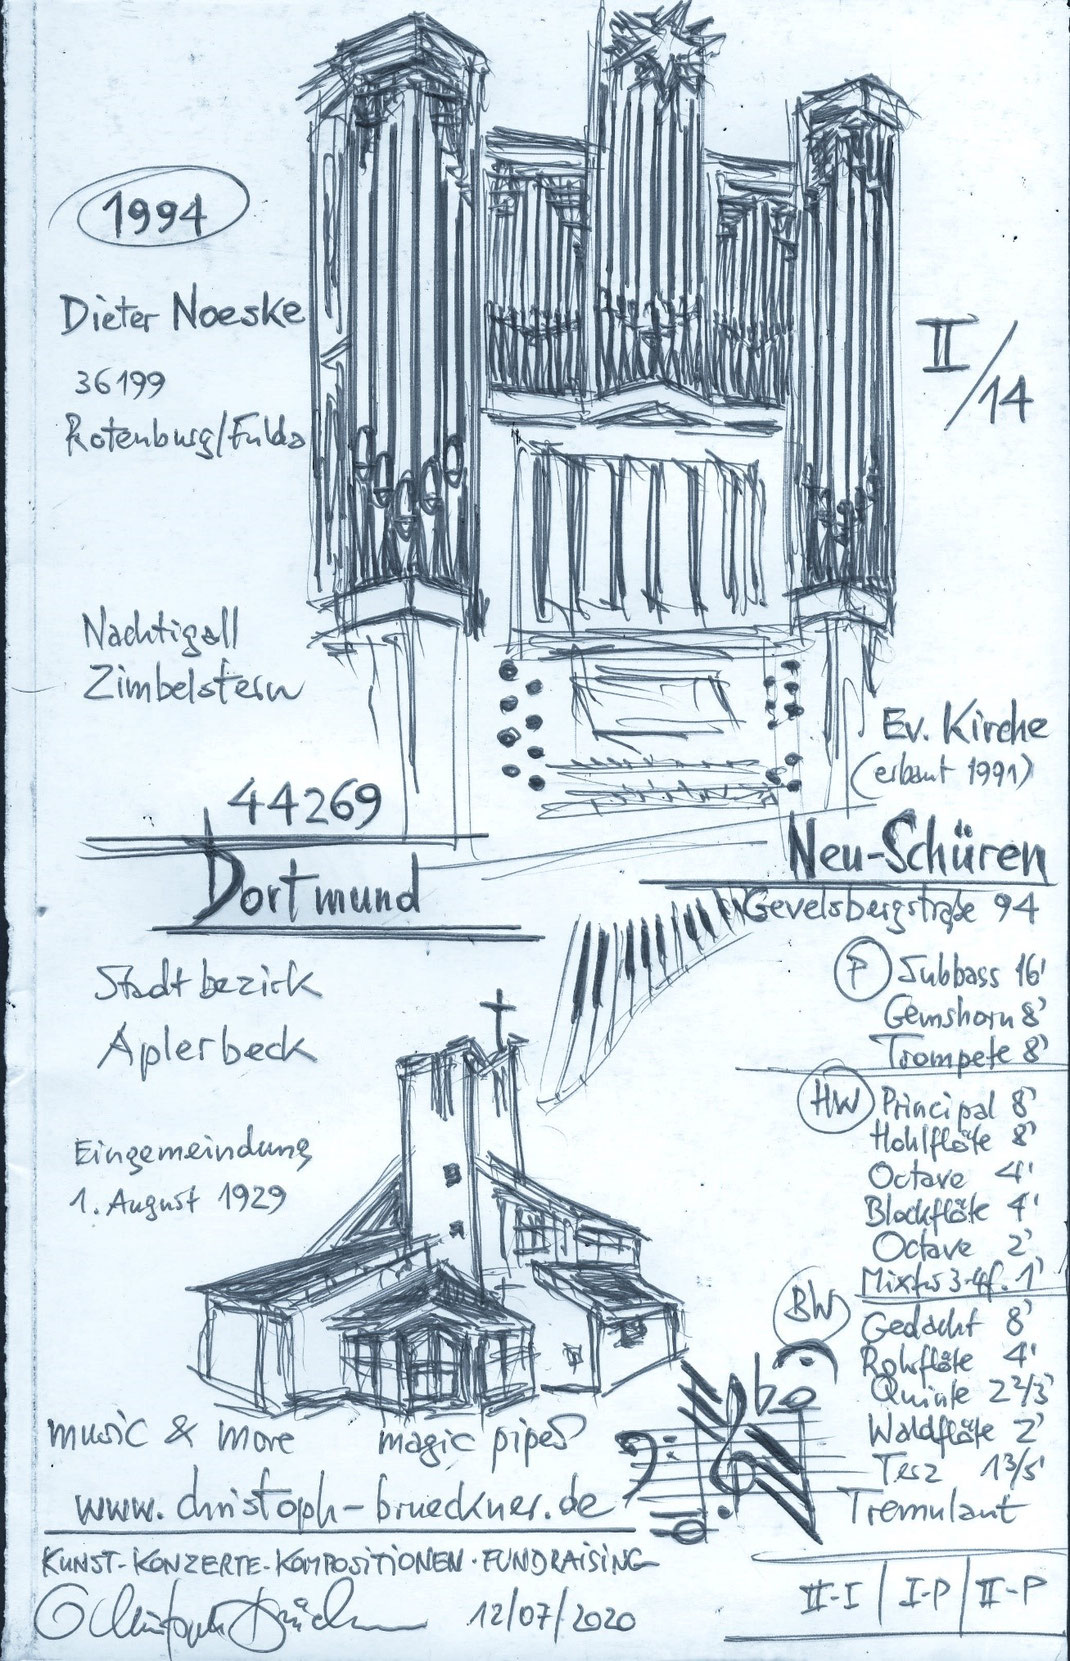 1994
Dieter Noeske
36199
Rotenburg/Fulda
II/14
Nachtigall
Zimbelstern
Ev. Kirche
(erbaut 1991)
44269
Dortmund
Neu-Schüren
Gevelsbergstraße 94
Stadtbezirk
Aplerbeck
Eingemeindung
1. August 1929
P Subbass 16'
Gemshorn 8'
Trompete 8'
HW Principal 8'
Hohlflöte 8'
Octave 4'
Blockflöte 4'
Octave 2'
Mixtur 3-4f. 1'
BW
Gedackt 8'
Rohrflöte 4'
Quinte 2 2/3'
Waldflöte 2'
Terz 1 3/5'
Tremulant
music & more magic pipes
www.christoph-brueckner.de
KUNST-KONZERTE-KOMPOSITIONEN·FUNDRAISING
Christoph Brückner 12/07/2020
II-I | I-P | II-P